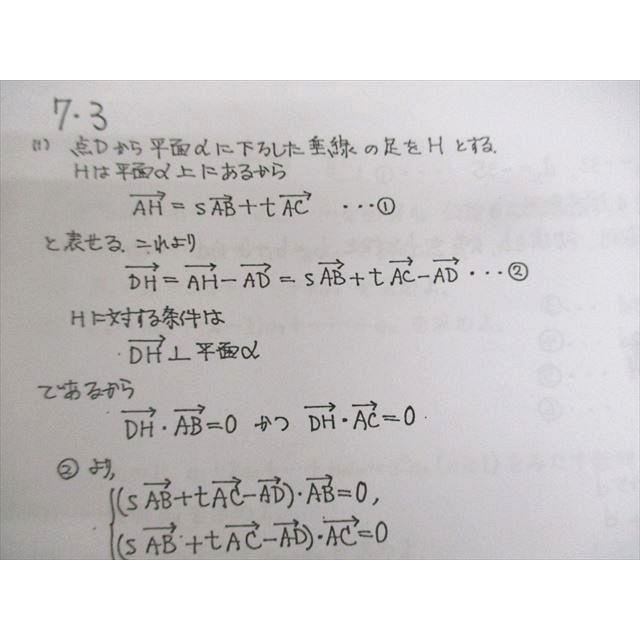 7・3
(1) 点Dから平面αに下ろした垂線の足をHとする.
Hは平面α上にあるから
$\overrightarrow{AH}=s\overrightarrow{AB}+t\overrightarrow{AC}$ ・・・①
と表せる. これより
$\overrightarrow{DH}=\overrightarrow{AH}-\overrightarrow{AD}=s\overrightarrow{AB}+t\overrightarrow{AC}-\overrightarrow{AD}$ ・・・②
Hに対する条件は
$\overrightarrow{DH}$⊥平面α
であるから
$\overrightarrow{DH}\cdot\overrightarrow{AB}=0$ かつ $\overrightarrow{DH}\cdot\overrightarrow{AC}=0$.
②より,
$(s\overrightarrow{AB}+t\overrightarrow{AC}-\overrightarrow{AD})\cdot\overrightarrow{AB}=0$,
$(s\overrightarrow{AB}+t\overrightarrow{AC}-\overrightarrow{AD})\cdot\overrightarrow{AC}=0$